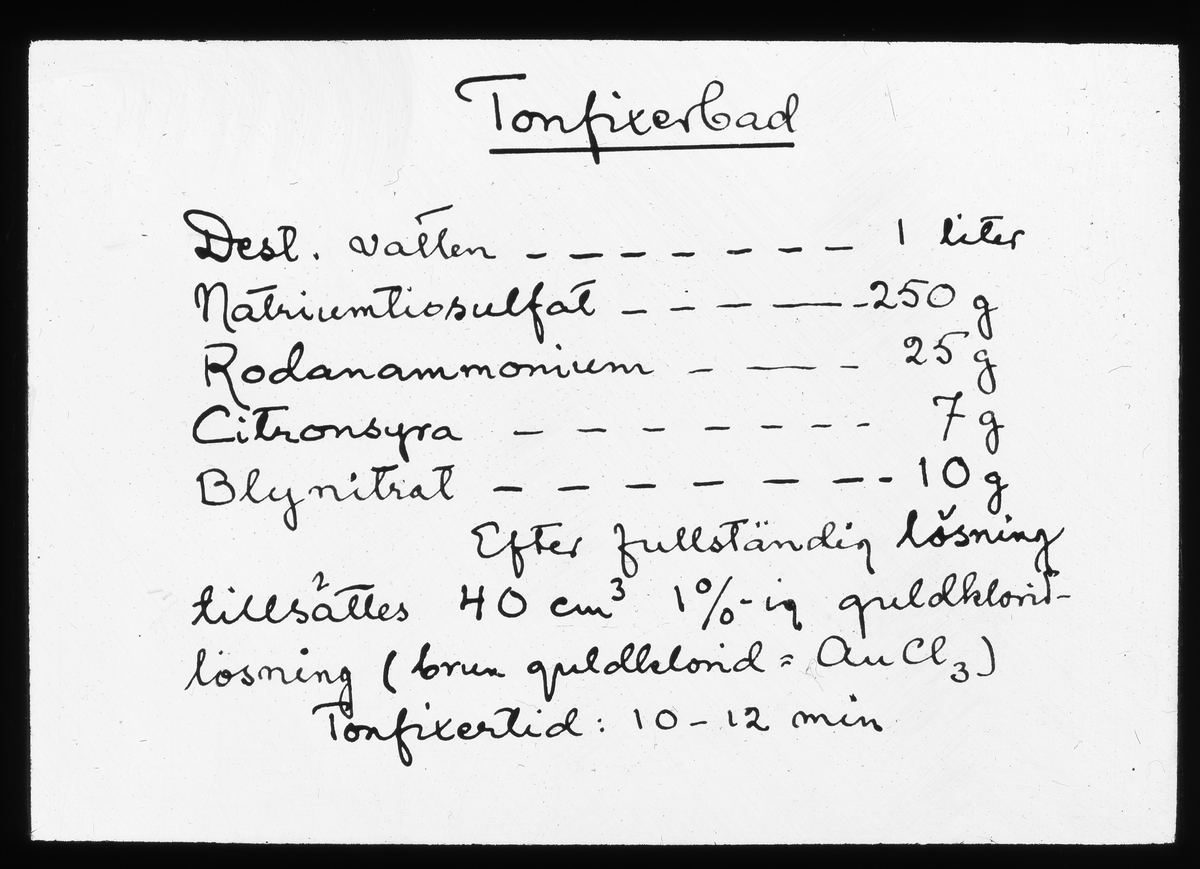 Tonfixerbad
Dest. vatten - - - - - - - 1 liter
Natriumtiosulfat - - - — - 250 g
Rodanammonium - — - 25 g
Citronsyra - - - - - - - 7 g
Blynitrat - - - - - - - 10 g
Efter fullständig lösning
tillsättes 40 cm³ 1%-ig guldklorid-
lösning (brun guldklorid = AuCl₃)
Tonfixertid: 10-12 min